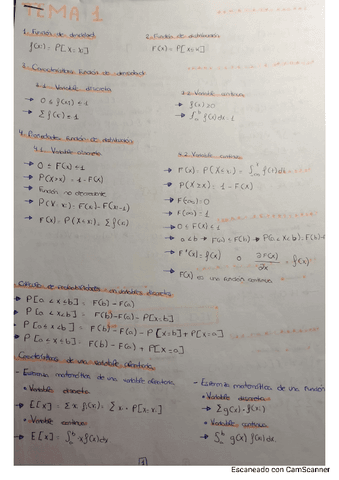 TEMA 1
1. Función de densidad
f(xi) = P[X = xi]
2. Función de distribución
F(x) = P[X ≤ x]
3. Características función de densidad
3.1. Variable discreta
→ 0 ≤ f(xi) ≤ 1
→ Σ f(xi) = 1
3.2. Variable continua
→ f(x) ≥ 0
→ ∫ₐᵇ f(x) dx = 1
4. Propiedades función de distribución
4.1. Variable discreta
→ 0 ≤ F(x) ≤ 1
→ P(X>x) = 1 - F(x)
→ Función no decreciente
→ P(X=xi) = F(xi) - F(xi-1)
→ F(x) = P(X≤xi) = Σ f(xi)
4.2. Variable continua
→ F(x) = P(X≤x) =
→ P(X≥x) = 1 - F(x)
→ F(-∞) = 0
→ F(∞) = 1
→ 0 ≤ F(x) ≤ 1
→ a<b → F(a) ≤ F(b) →
→ F'(x) = f(x) o ∂F(x)/∂x = f(x)
→ F(x) es una función continua
Cálculo de probabilidades en variables discretas
→ P[a < X ≤ b] = F(b) - F(a)
→ P[a < X < b] = F(b) - F(a) - P[X=b]
→ P[a ≤ X < b] = F(b) - F(a) - P[X=b] + P[X=a]
→ P[a ≤ X ≤ b] = F(b) - F(a) + P[X=a]
Características de una variable aleatoria
- Esperanza matemática de una variable aleatoria
• Variable discreta
→ E[X] = Σ xi f(xi) = Σ xi · P[X=xi]
• Variable continua
→ E[X] = ∫ₐᵇ x f(x) dx
- Esperanza matemática de una función
• Variable discreta
→ Σ g(x) · f(xi)
• Variable continua
→ ∫ₐᵇ g(x) f(x) dx
1
Escaneado con CamScanner